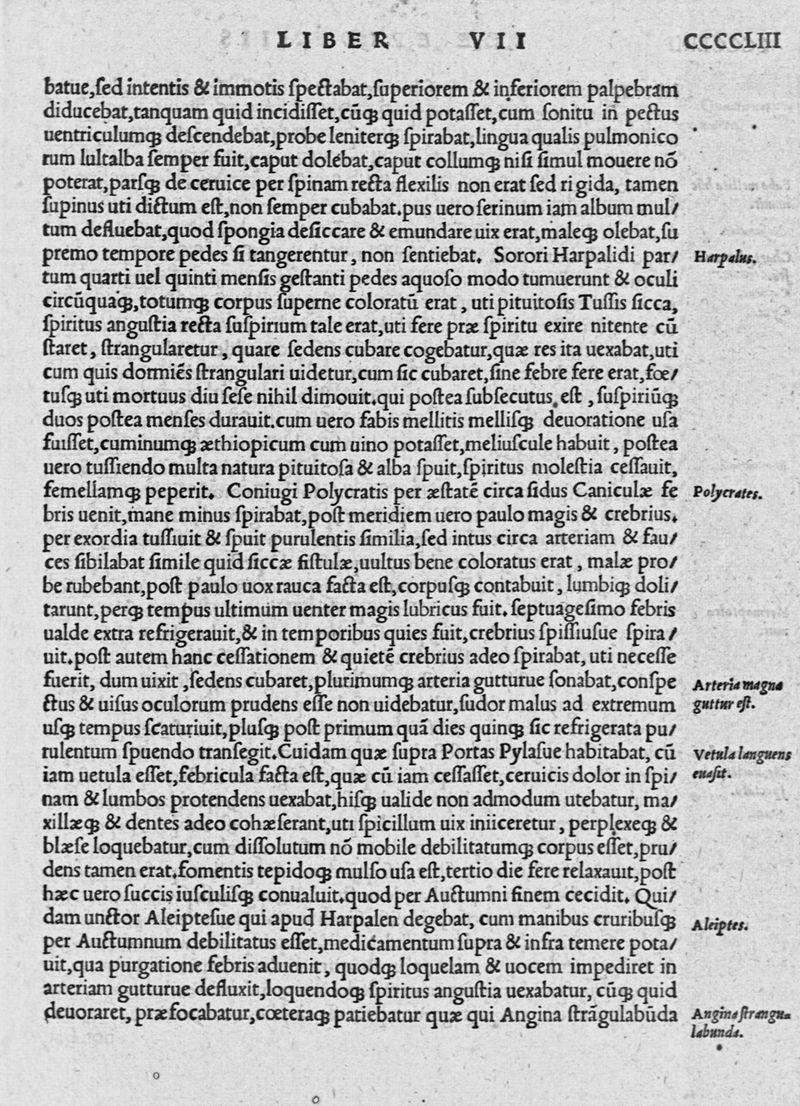 LIBER VII CCCCLIII
batue,ſed intentis & immotis ſpectabat,ſuperiorem & inferiorem palpebram
diducebat,tanquam quid incidiſſet,cũꝗ quid potaſſet,cum ſonitu in pectus
uentriculumꝗ deſcendebat,probe leniterꝗ ſpirabat,lingua qualis pulmonico
rum lultalba ſemper fuit,caput dolebat,caput collumꝗ niſi ſimul mouere nõ
poterat,parſꝗ de ceruice per ſpinam recta flexilis non erat ſed rigida, tamen
ſupinus uti dictum eſt,non ſemper cubabat.pus uero ſerinum iam album mul/
tum defluebat,quod ſpongia deſiccare & emundare uix erat,maleꝗ olebat,ſu
premo tempore pedes ſi tangerentur, non ſentiebat. Sorori Harpalidi par/ Harpalus.
tum quarti uel quinti menſis geſtanti pedes aquoſo modo tumuerunt & oculi
circũquaꝗ,totumꝗ corpus ſuperne coloratũ erat, uti pituitoſis Tuſſis ſicca,
ſpiritus anguſtia recta ſuſpirium tale erat,uti fere præ ſpiritu exire nitente cũ
ſtaret, ſtrangularetur, quare ſedens cubare cogebatur,quæ res ita uexabat,uti
cum quis dormiẽs ſtrangulari uidetur,cum ſic cubaret,ſine febre fere erat,fœ/
tuſꝗ uti mortuus diu ſeſe nihil dimouit.qui poſtea ſubſecutus eſt, ſuſpiriũꝗ
duos poſtea menſes durauit.cum uero fabis mellitis melliſꝗ deuoratione uſa
fuiſſet,cuminumꝗ æthiopicum cum uino potaſſet,meliuſcule habuit, poſtea
uero tuſſiendo multa natura pituitoſa & alba ſpuit,ſpiritus moleſtia ceſſauit,
femellamꝗ peperit. Coniugi Polycratis per æſtatẽ circa ſidus Caniculæ fe Polycrates.
bris uenit,mane minus ſpirabat,poſt meridiem uero paulo magis & crebrius.
per exordia tuſſiuit & ſpuit purulentis ſimilia,ſed intus circa arteriam & fau/
ces ſibilabat ſimile quid ſiccæ fiſtulæ,uultus bene coloratus erat, malæ pro/
be rubebant,poſt paulo uox rauca facta eſt,corpuſꝗ contabuit, lumbiꝗ doli/
tarunt,perꝗ tempus ultimum uenter magis lubricus fuit. ſeptuageſimo febris
ualde extra refrigerauit,& in temporibus quies fuit,crebrius ſpiſſiuſue ſpira/
uit.poſt autem hanc ceſſationem & quietẽ crebrius adeo ſpirabat, uti neceſſe
fuerit, dum uixit,ſedens cubaret,plurimumꝗ arteria gutturue ſonabat,conſpe Arteria magna
ctus & uiſus oculorum prudens eſſe non uidebatur,ſudor malus ad extremum guttur eſt.
uſꝗ tempus ſcaturiuit,pluſꝗ poſt primum quã dies quinꝗ ſic refrigerata pu/
rulentum ſpuendo tranſegit.Cuidam quæ ſupra Portas Pylaſue habitabat, cũ Vetula languens
iam uetula eſſet,febricula facta eſt,quæ cũ iam ceſſaſſet,ceruicis dolor in ſpi/ euaſit.
nam & lumbos protendens uexabat,hiſꝗ ualide non admodum utebatur, ma/
xillæꝗ & dentes adeo cohæſerant,uti ſpicillum uix iniiceretur, perplexeꝗ &
blæſe loquebatur,cum diſſolutum nõ mobile debilitatumꝗ corpus eſſet,pru/
dens tamen erat.fomentis tepidoꝗ mulſo uſa eſt,tertio die fere relaxauit,poſt
hæc uero ſuccis iuſculiſꝗ conualuit.quod per Auctumni finem cecidit. Qui/
dam unctor Aleipteſue qui apud Harpalen degebat, cum manibus cruribuſꝗ Aleiptes.
per Auctumnum debilitatus eſſet,medicamentum ſupra & infra temere pota/
uit,qua purgatione febris aduenit, quodꝗ loquelam & uocem impediret in
arteriam gutturue defluxit,loquendoꝗ ſpiritus anguſtia uexabatur, cũꝗ quid
deuoraret, præfocabatur,cœteraꝗ patiebatur quæ qui Angina ſtrãgulabũda Angina ſtrangu-
labunda.